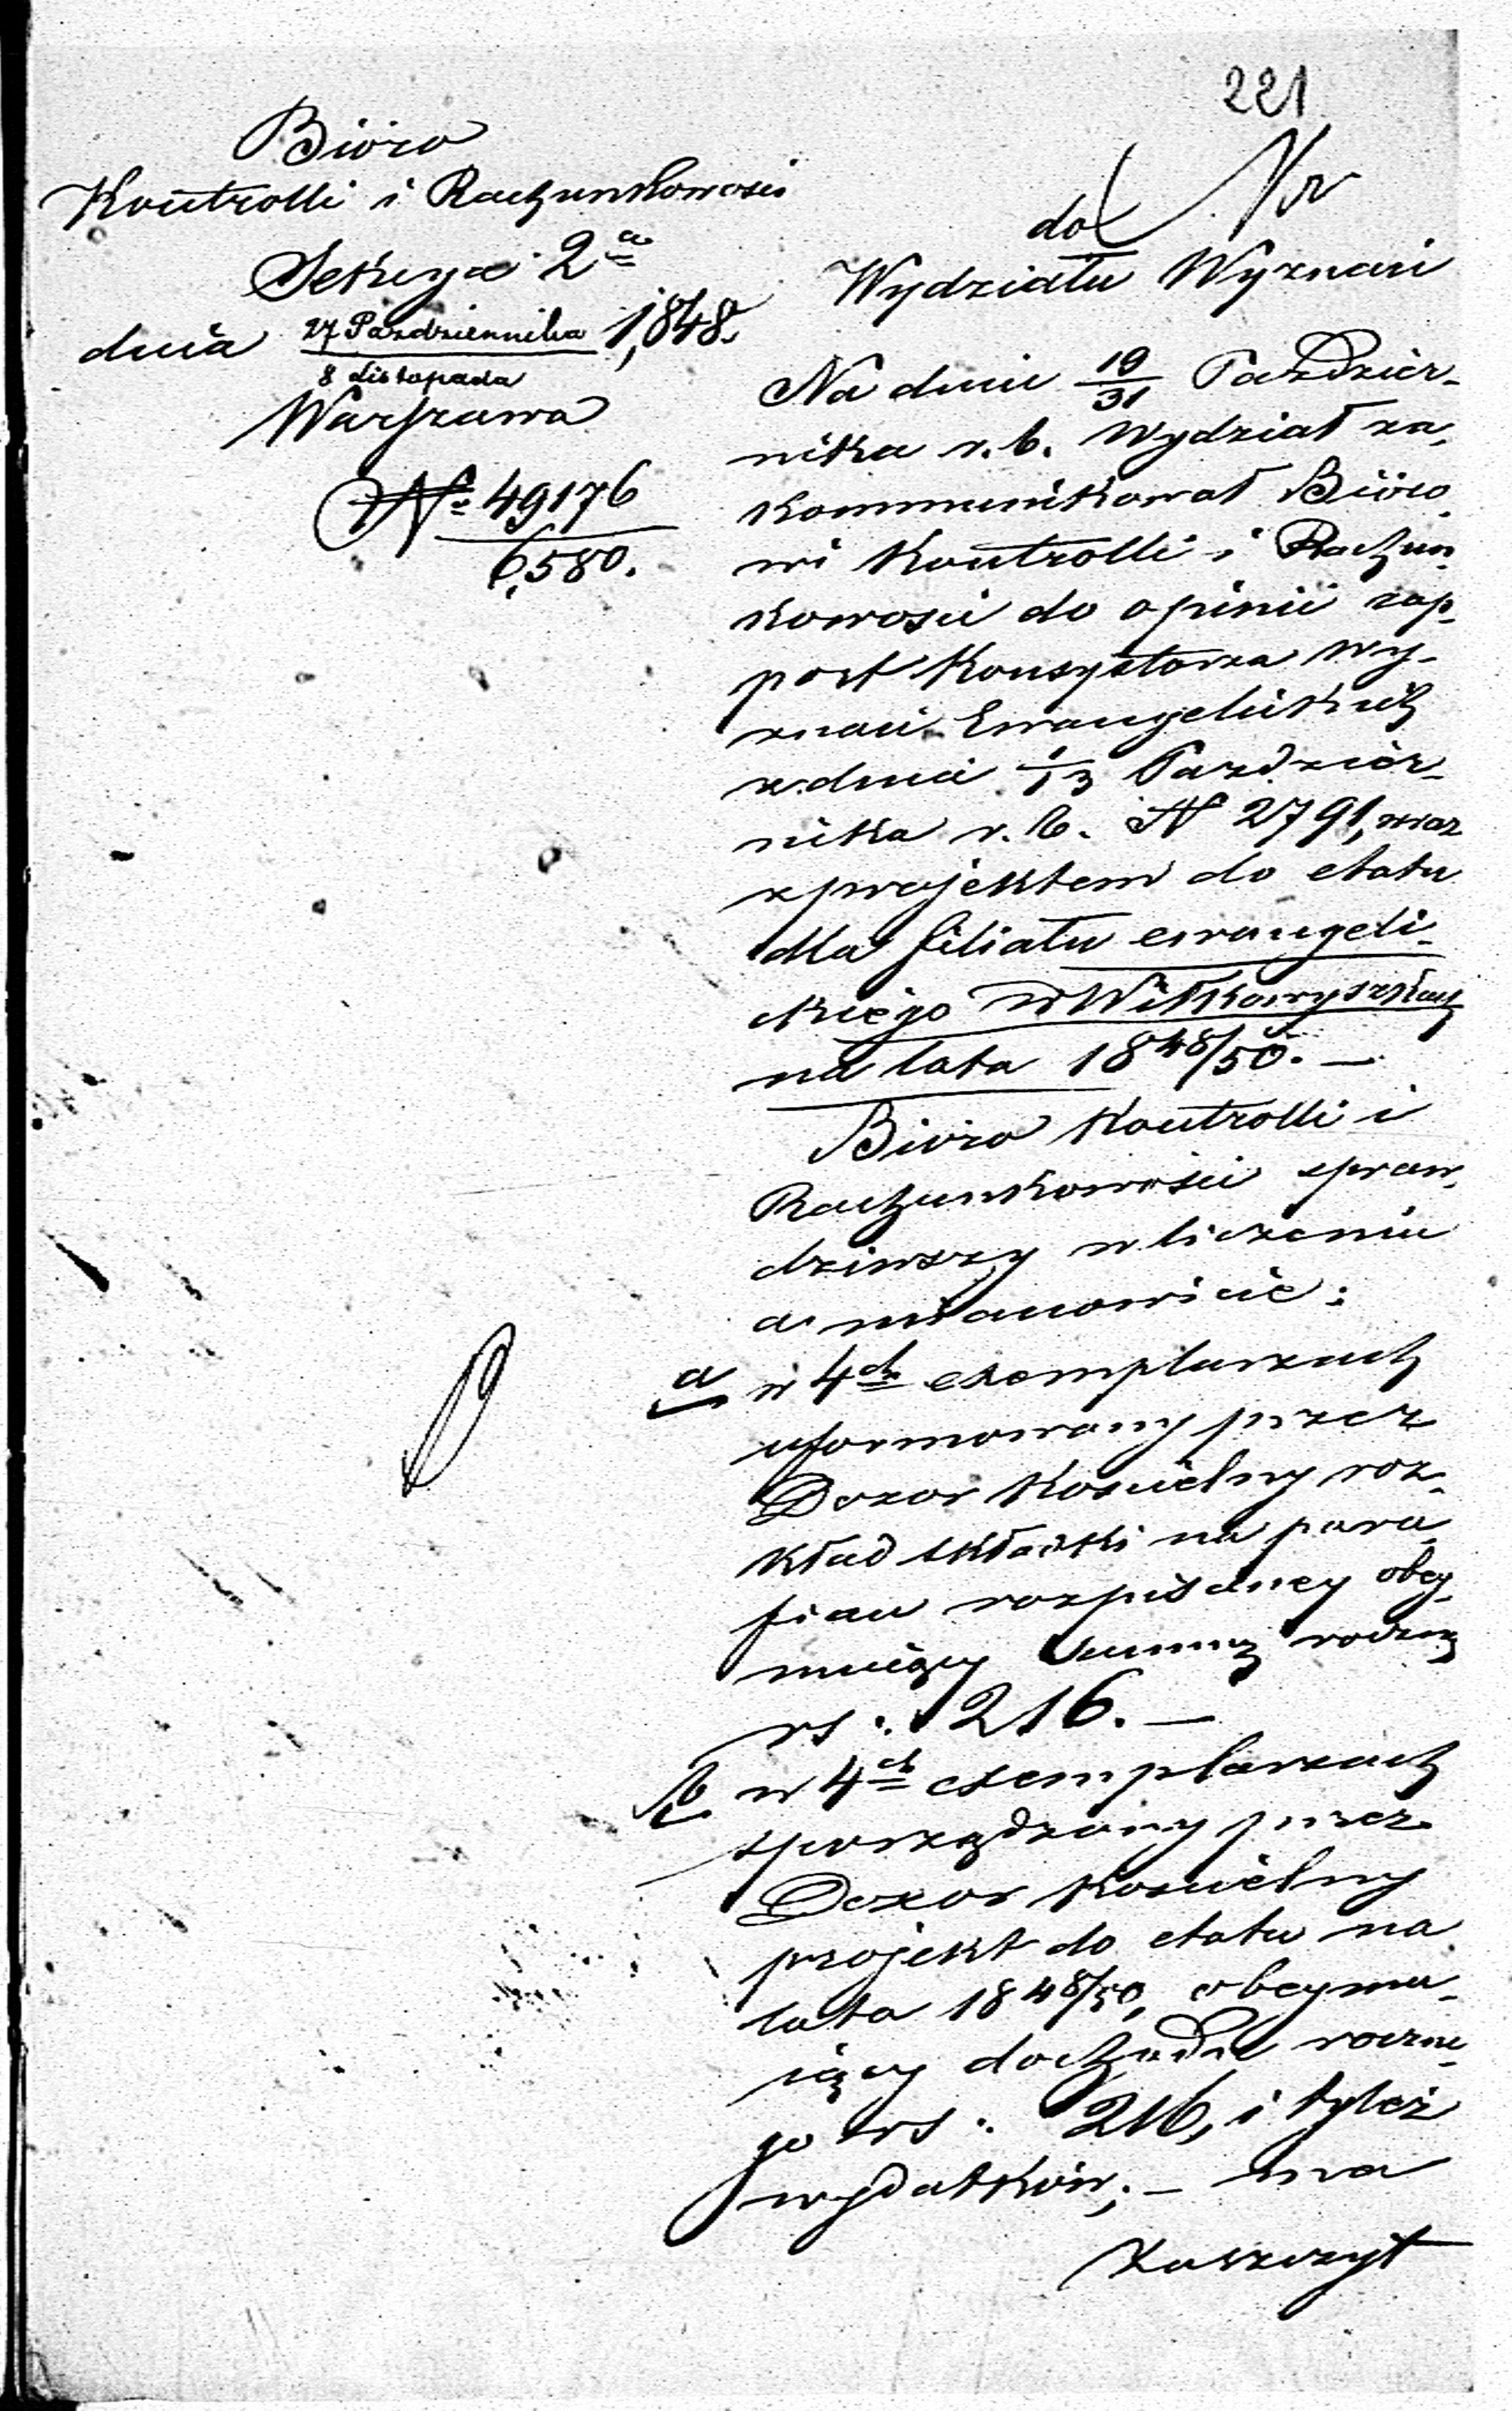 221
Biöro
Kontrolli i Rachunkowości
Sekcya 2a
dnia 27 Października 1,848.
8 Listopada
Warszawa
No 49176
6,580.
do
Wydziału Wyznań
Na dniu 19/31 Paździer-
nika r. b. Wydział za-
kommunikował Biöro-
wi Kontrolli i Rachun-
kowości do opinii rap-
port Konsystorza wy-
znań Ewangelickich
z dnia 1/13 Paździer-
nika r. b. N 2791, wraz
z projektem do etatu
dla filiału ewangeli-
ckiego w Wiłkowyszkach
na lata 1848/50. —
Bióro Kontrolli i
Rachunkowości spraw-
dziwszy w liczeniu
a mianowicie:
a w 4ch exemplarzach
uformowany przez
Dozor Kościelny roz-
kład składki na para-
fian rozpisaney obey-
muiący Summę roczną
rs: 216. —
b w 4ch exemplarzach
sporządzony przez
Dozor Kościelny
projekt do etatu na
lata 1848/50, obeyma-
iący dochodu roczne-
go rs: 216, i tyleż
wydatków; — ma
zaszczyt